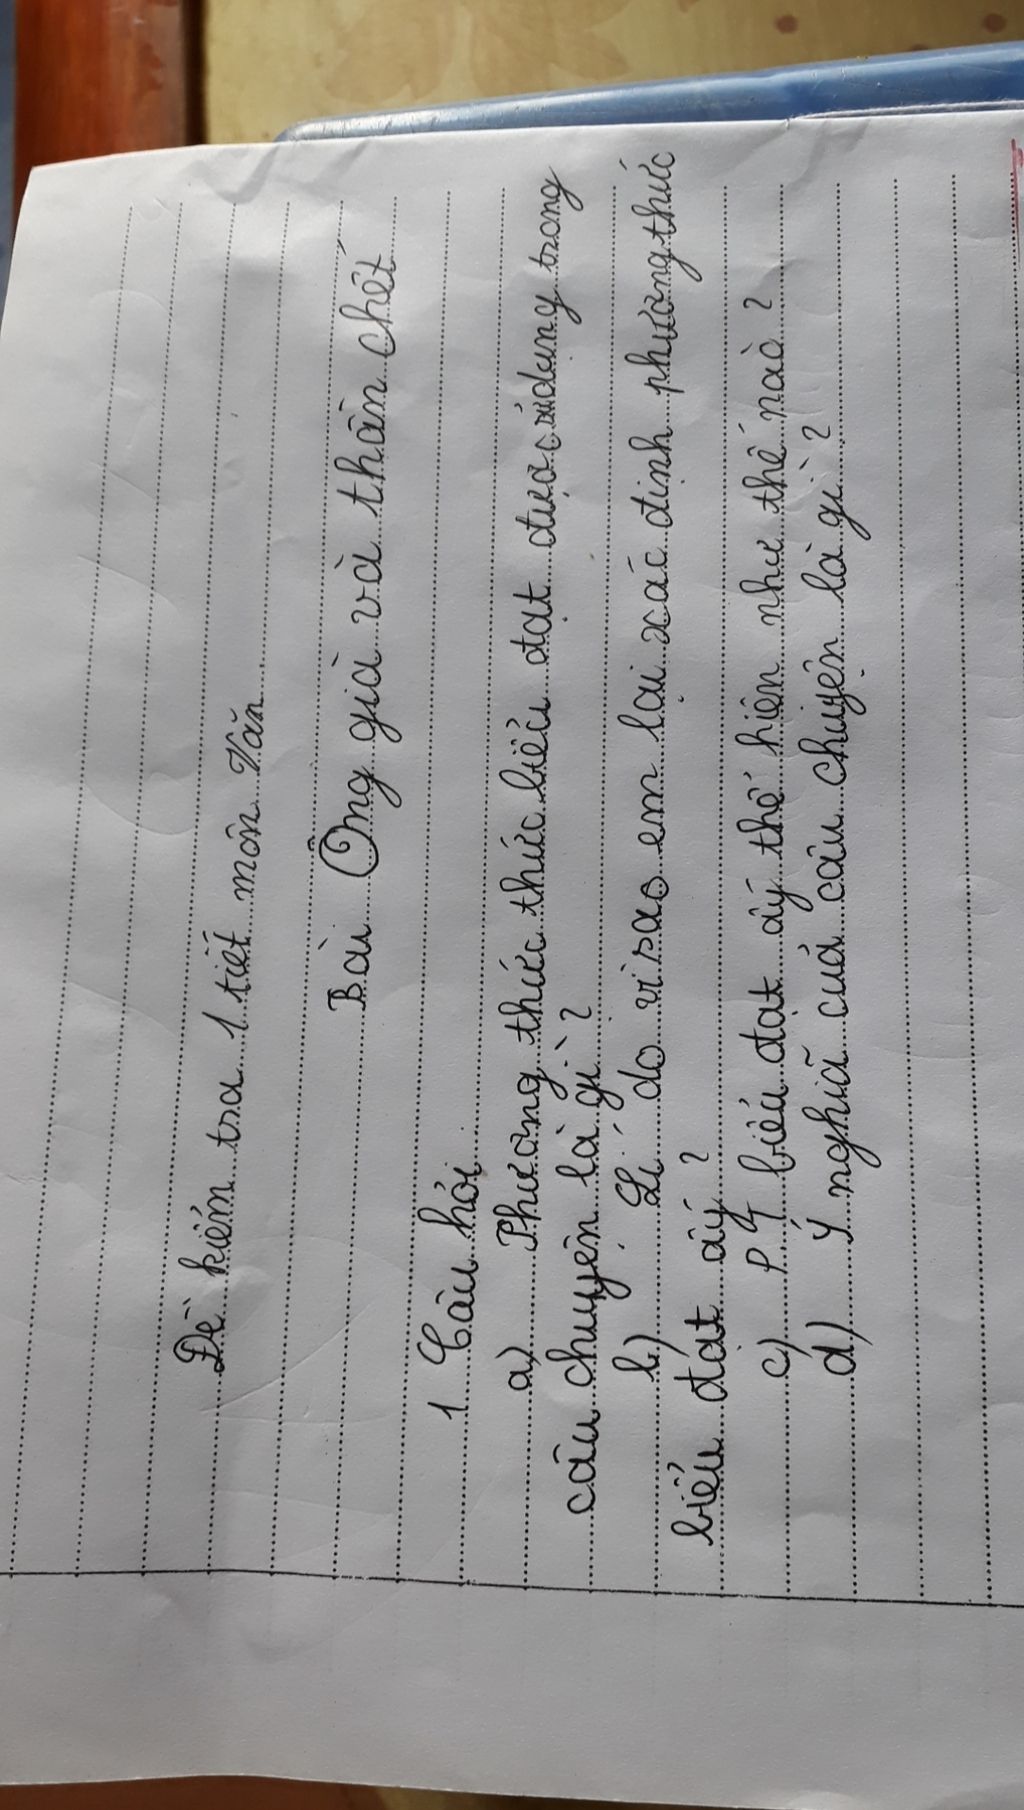 Đề kiểm tra 1 tiết môn Văn
Bài Ông già và thần chết
1. Câu hỏi
a) Phương thức thức biểu đạt được sử dụng trong
câu chuyện là gì ?
b) Lí do vì sao em lại xác định phương thức
biểu đạt ấy ?
c) P.T biểu đạt ấy thể hiện như thế nào ?
d) Ý nghĩa cuả câu chuyện là gì ?